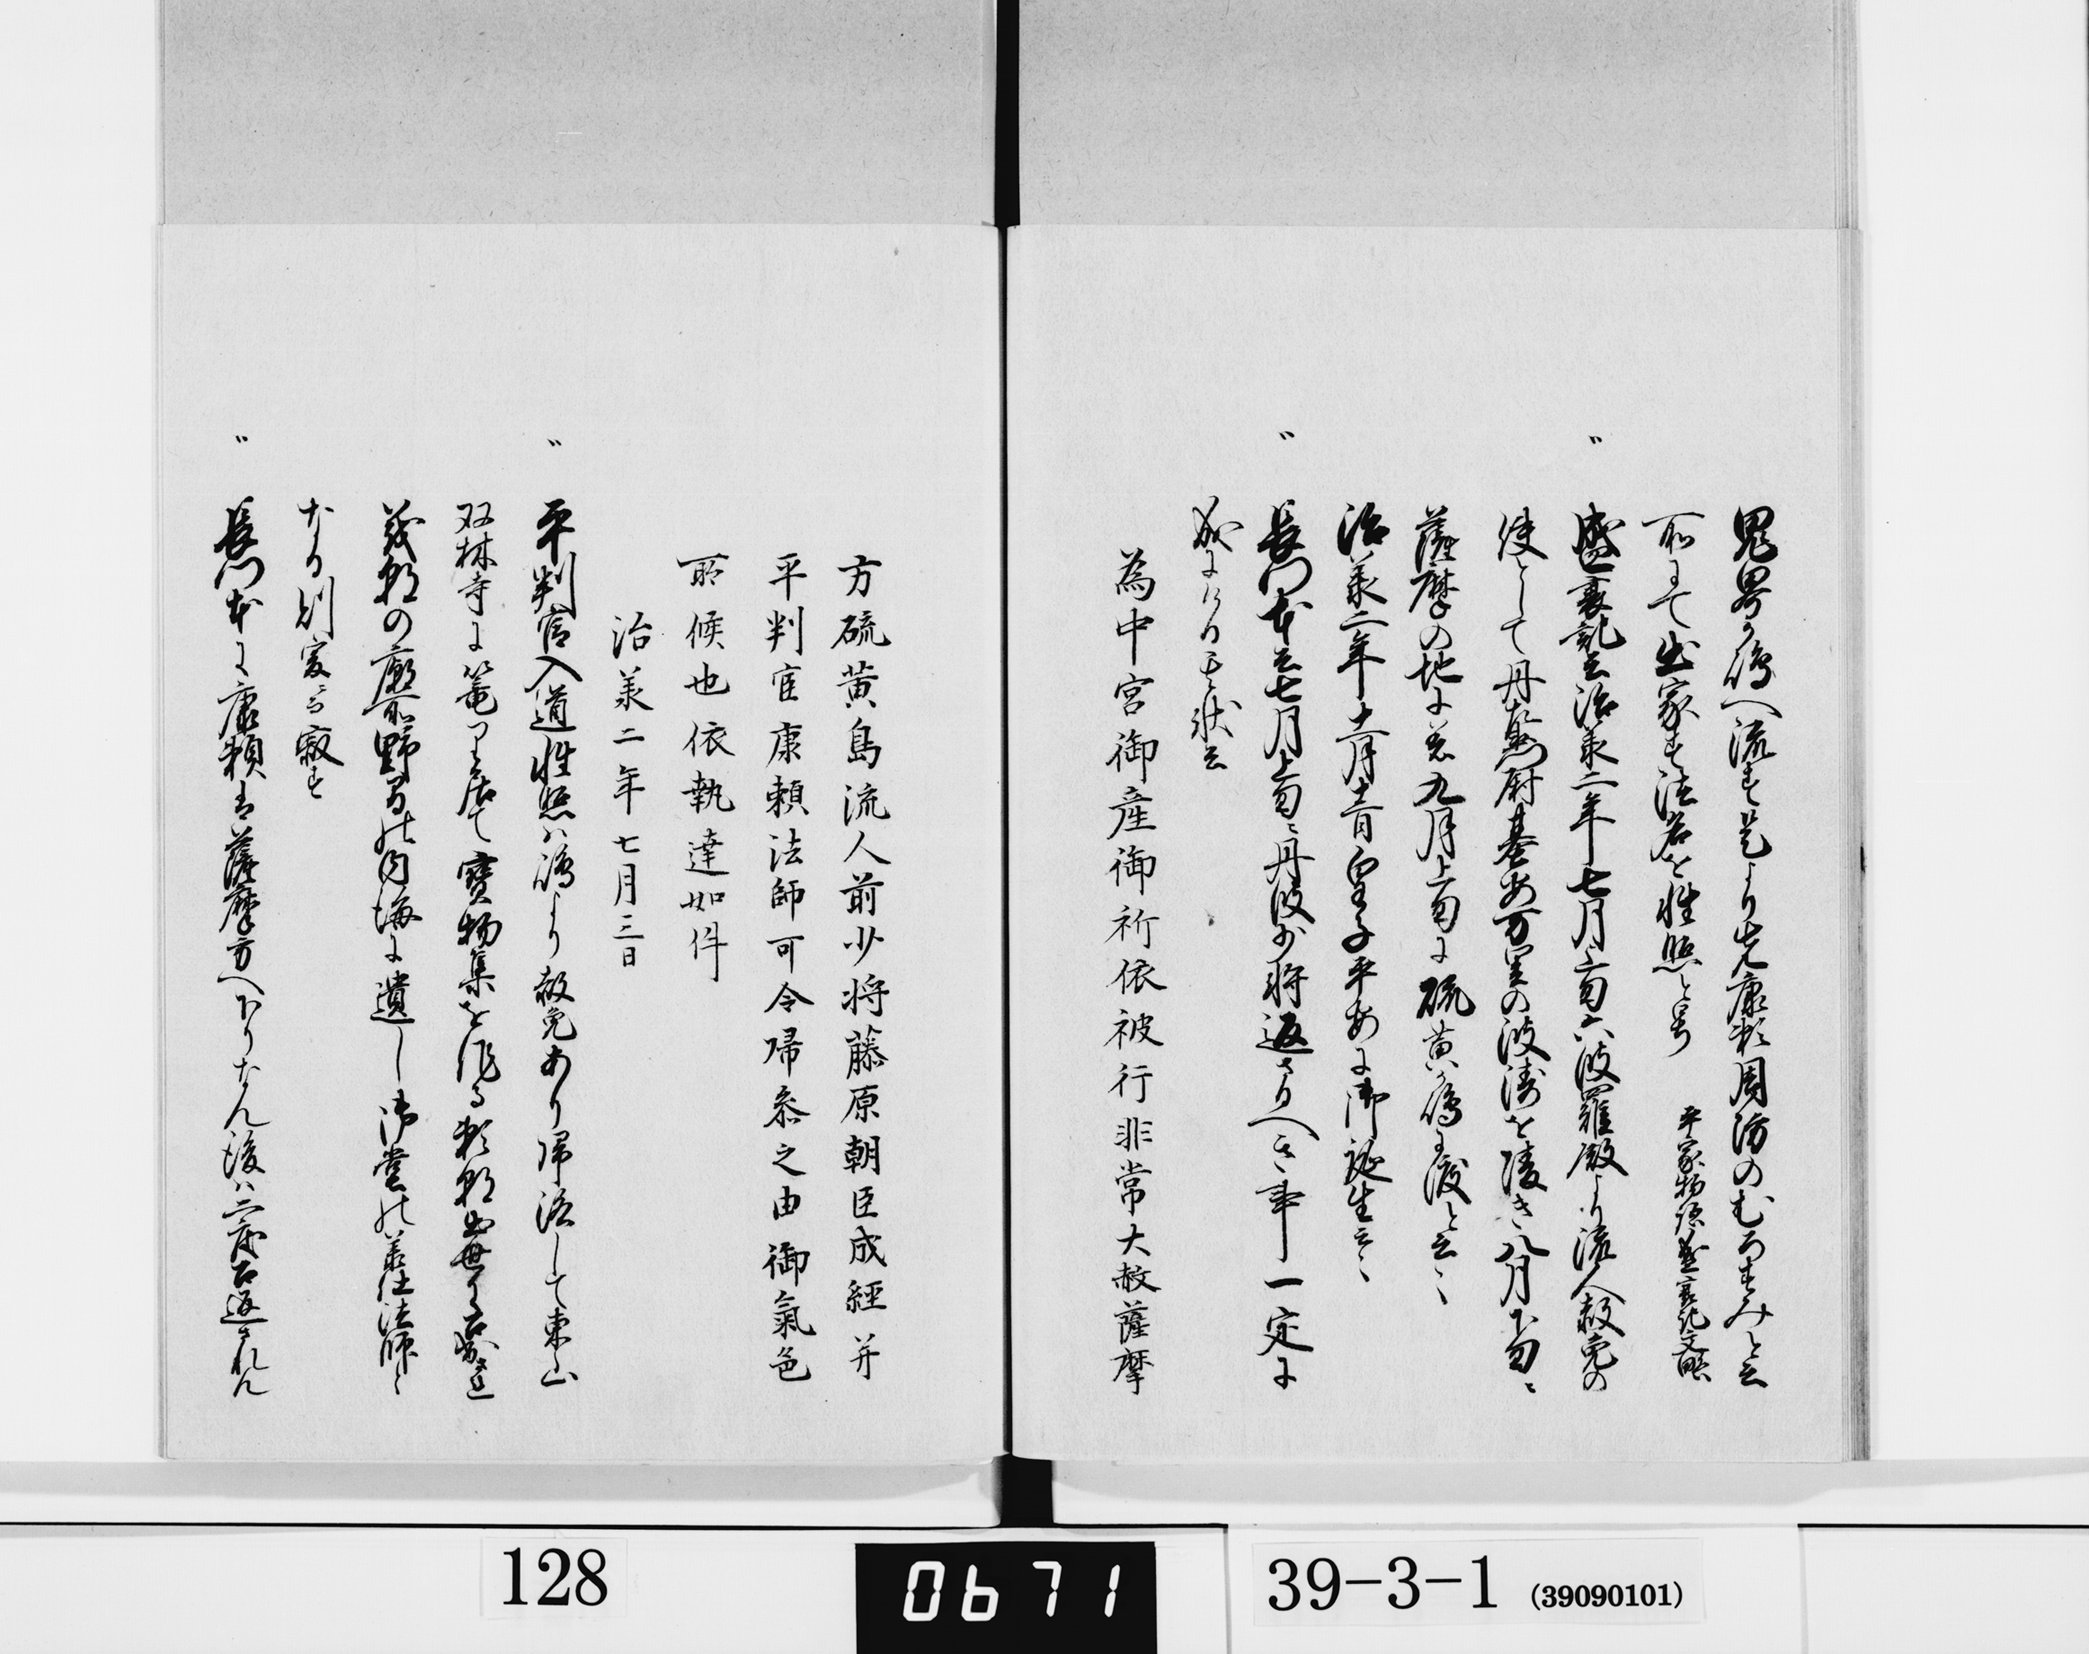 鬼界ヶ嶋へ流す是より先康頼周防のむろすみと云
所にて出家す法名を性照と号 平家物語盛衰記文略
〃 盛衰記云治承二年七月下旬六波羅殿より流人赦免の
使として丹左衛門尉基安万里の波濤を凌き八月下旬ニ
薩摩の地に着九月上旬に硫黄ヶ嶋に渡と云々
治承二年十一月十二日皇子平安に御誕生云々
〃 長門本云七月上旬ニ丹波少将返さるへき事一定に
成にけり其状云
為中宮御産御祈依被行非常大赦薩摩
方硫黄島流人前少将藤原朝臣成経并
平判官康頼法師可令帰参之由御氣色
所候也依執達如件
治承二年七月三日
〃 平判官入道性照ハ嶋より赦免あり帰洛して東山
双林寺に篭り居て寶物集を作る頼朝出世
義朝の廟所野間の内海に遺し御堂の 法師
なる則
〃 長門本に康頼は薩摩方へ下りなん後ハ 召返されん
128
0671
39-3-1 (39090101)